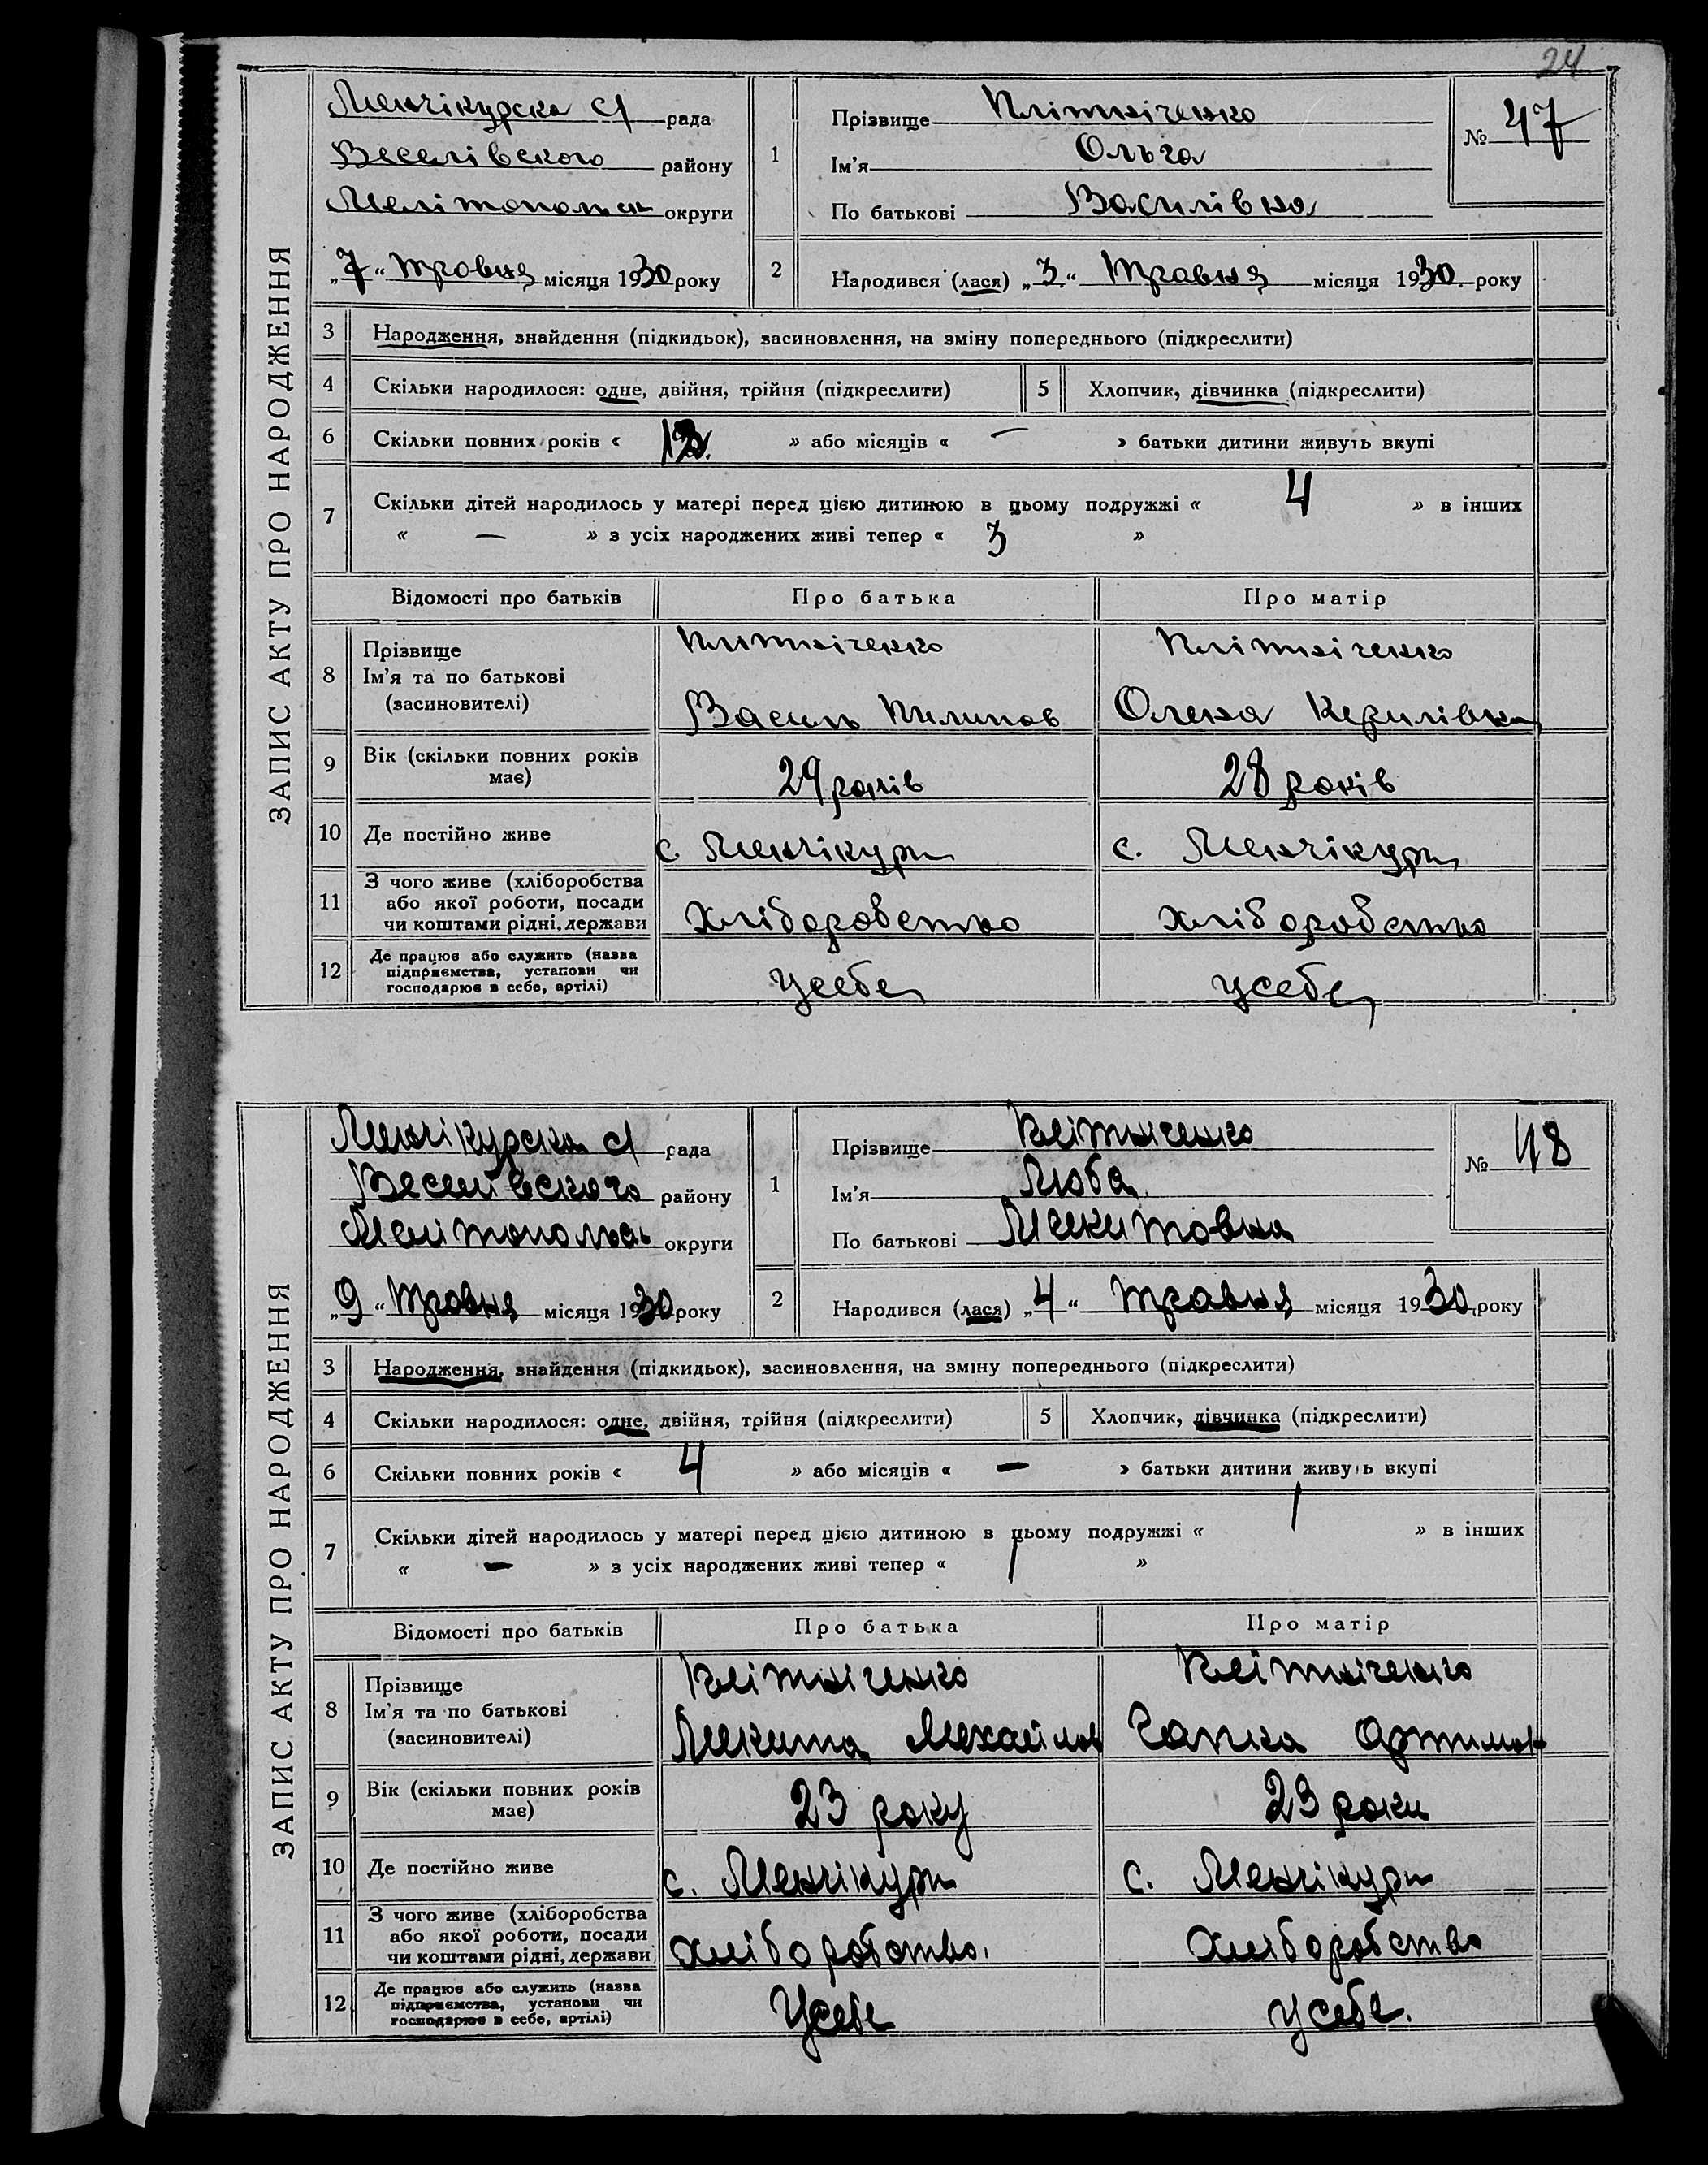 24
ЗАПИС АКТУ ПРО НАРОДЖЕННЯ
Менчікурска с/ рада
Веселівского району
Мелітопольск округи
„7“ Травня місяця 1930 року
1
Прізвище Плітніченко
Ім'я Ольга
По батькові Василівна
№ 47
2
Народився (лася) „3“ Травня місяця 1930 року
3 Народження, знайдення (підкидьок), засиновлення, на зміну попереднього (підкреслити)
4 Скільки народилося: одне, двійня, трійня (підкреслити) 5 Хлопчик, дівчинка (підкреслити)
6 Скільки повних років « » або місяців « — » батьки дитини живуть вкупі
7 Скільки дітей народилось у матері перед цією дитиною в цьому подружжі « 4 » в інших
« — » з усіх народжених живі тепер « 3 »
Відомості про батьків Про батька Про матір
8 Прізвище
Ім'я та по батькові
(засновителі)
Плітніченко Плітніченко
Василь Пилипов Олена Керилівна
9 Вік (скільки повних років має) 29 років 28 років
10 Де постійно живе с. Менчікури с. Менчікури
11 З чого живе (хліборобства
або якої роботи, посади
чи коштами рідні, держави
Хліборобство хліборобство
12 Де працює або служить (назва
підприємства, установи чи
господарює в себе, артілі)
усебе усебе
ЗАПИС АКТУ ПРО НАРОДЖЕННЯ
Менчікурска с/ рада
Веселівского району
Мелітопольск округи
„9“ Травня місяця 1930 року
1
Прізвище Плітніченко
Ім'я Люба
По батькові Мекитовна
№ 48
2
Народився (лася) „4“ Травня місяця 1930 року
3 Народження, знайдення (підкидьок), засиновлення, на зміну попереднього (підкреслити)
4 Скільки народилося: одне, двійня, трійня (підкреслити) 5 Хлопчик, дівчинка (підкреслити)
6 Скільки повних років « 4 » або місяців « — » батьки дитини живуть вкупі
7 Скільки дітей народилось у матері перед цією дитиною в цьому подружжі « 1 » в інших
« — » з усіх народжених живі тепер « 1 »
Відомості про батьків Про батька Про матір
8 Прізвище
Ім'я та по батькові
(засиновителі)
Плітніченко Плітніченко
Мекита Мехайлов Гапка Артимов
9 Вік (скільки повних років має) 23 року 23 роки
10 Де постійно живе с. Менчікури с. Менчікури
11 З чого живе (хліборобства
або якої роботи, посади
чи коштами рідні, держави
хліборобство. Хліборобство
12 Де працює або служить (назва
підприємства, установи чи
господарює в себе, артілі)
Усебе усебе.